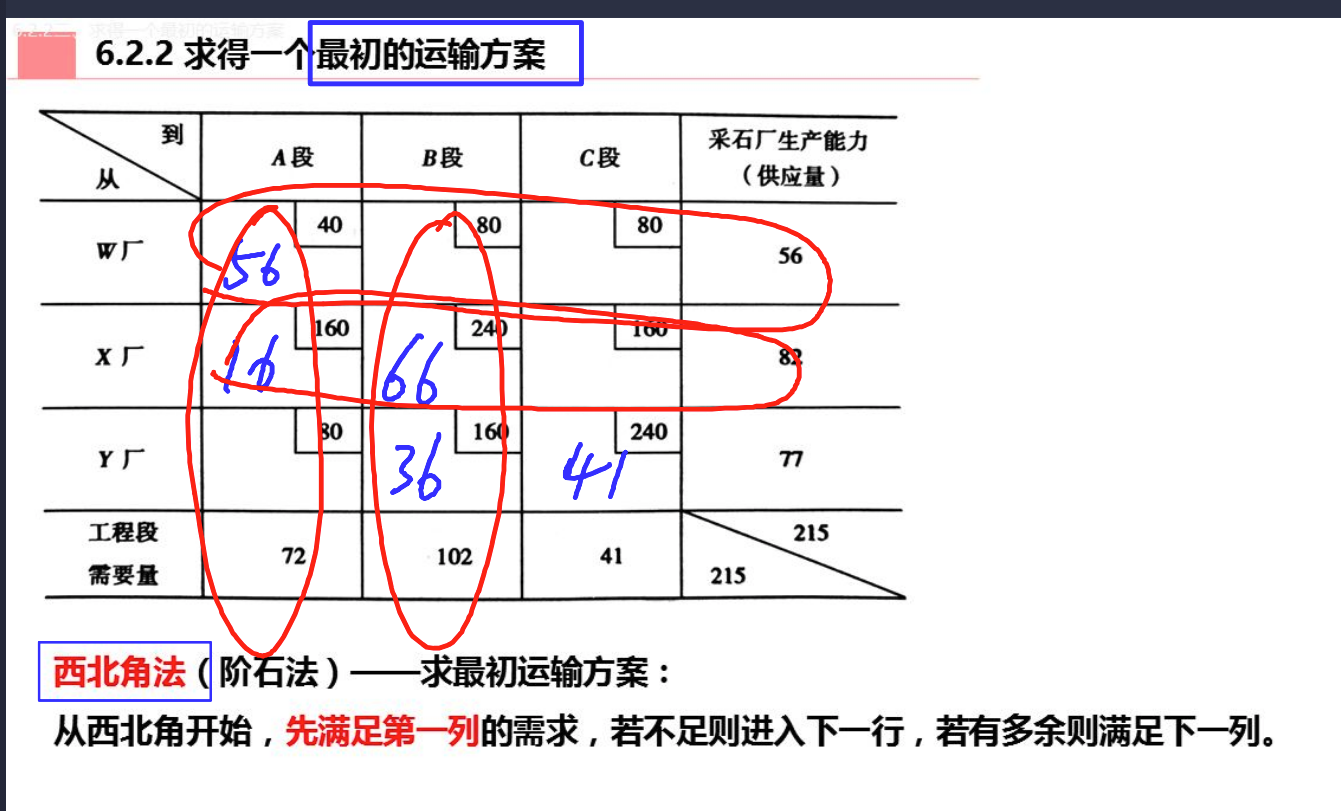 6.2.2 求得一个最初的运输方案
6.2.2 求得一个最初的运输方案
到
从
A段 B段 C段 采石厂生产能力
（供应量）
W厂 56 40 80 80 56
X厂 16 160 66 240 160 82
Y厂 80 36 160 41 240 77
工程段
需要量 72 102 41 215
215
西北角法（阶石法）——求最初运输方案：
从西北角开始，先满足第一列的需求，若不足则进入下一行，若有多余则满足下一列。